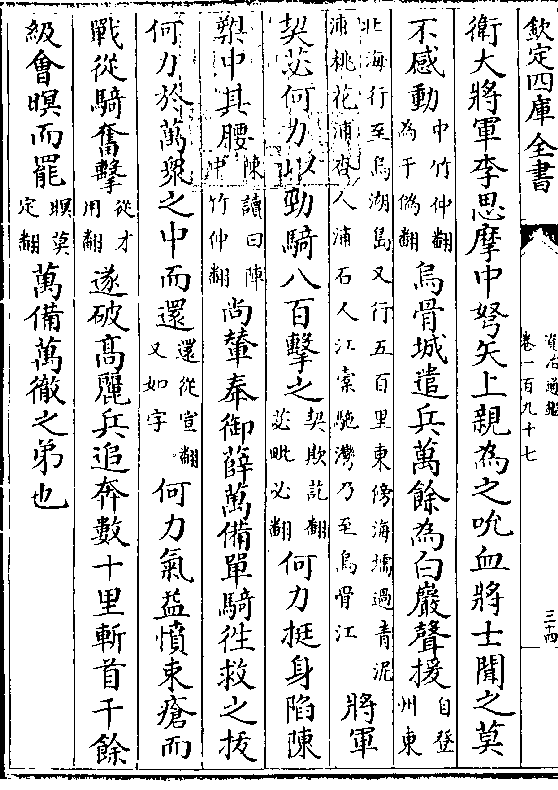 欽定四庫全書
資治通鑑
卷一百九十七
三十四
衛大將軍李思摩中弩矢上親為之吮血將士聞之莫
不感動中竹仲翻為于偽翻烏骨城遣兵萬餘為白巖聲援自登州東
北海行至烏湖島又行五百里東傍海壖過青泥浦桃花浦杏人浦石人汪橐駞灣乃至烏骨江將軍
契苾何力以勁騎八百擊之契欺訖翻苾毗必翻何力挺身陷陳
槊中其腰陳讀曰陣中竹仲翻尚輦奉御薛萬備單騎往救之拔
何力於萬衆之中而還還從宣翻又如字何力氣益憤束瘡而
戰從騎奮擊從才用翻遂破高麗兵追奔數十里斬首千餘
級會暝而罷暝莫定翻萬備萬徹之弟也